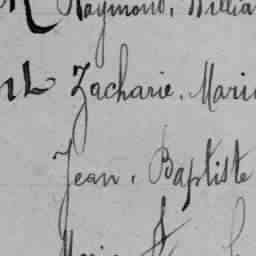 Raymond, Willia
Zacharie, Mari
Jean, Baptiste